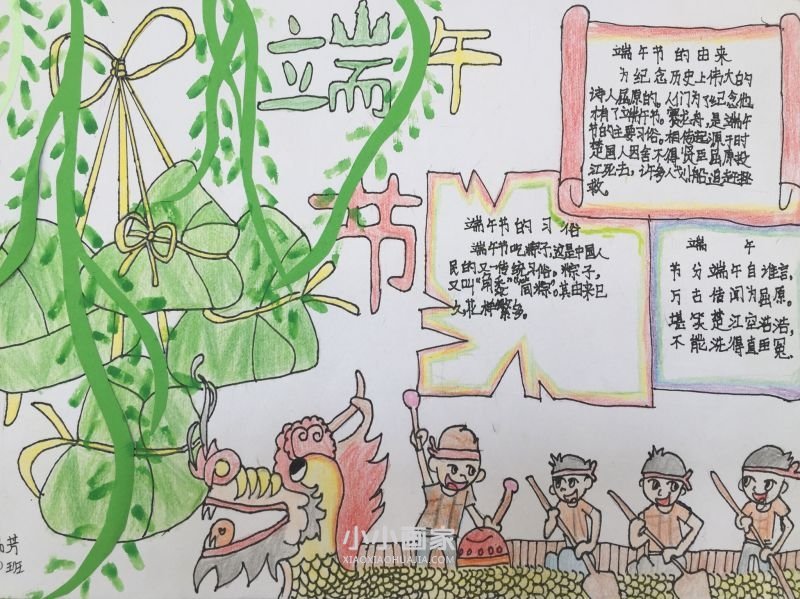 端午
节
端午节的由来
为纪念历史上伟大的
诗人屈原的,人们为了纪念他
才有了端午节。赛龙舟,是端午
节的主要习俗。相传起源于时
楚国人因舍不得贤臣屈原投
江死去,许多人划船追赶拯
救。
端午节的习俗
端午节吃粽子,这是中国人
民的又一传统习俗。粽子,
又叫“角黍”“筒粽”。其由来已
久,花样繁多。
端 午
节分端午自谁言,
万古传闻为屈原。
堪笑楚江空浩浩,
不能洗得直臣冤。
芳
班
小小画家
XIAOXIAOHUAJIA.COM